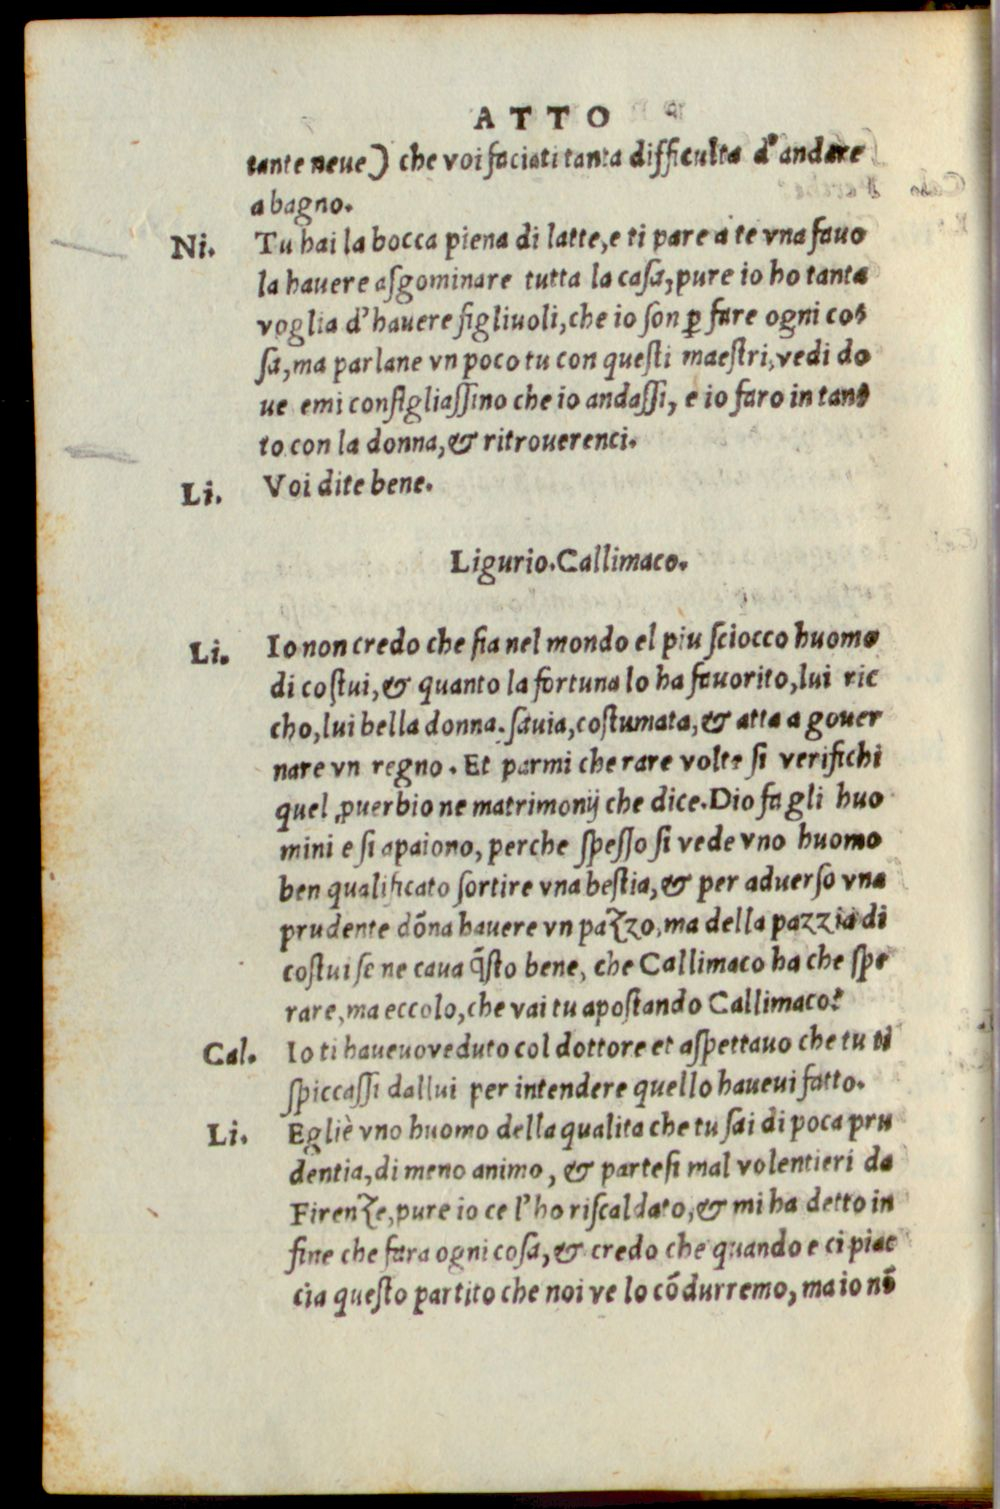 ATTO
tante neue) che voi faciati tanta difficulta d'andare
a bagno.
Ni. Tu hai la bocca piena di latte, e ti pare a te vna fauo
la hauere asgominare tutta la casa, pure io ho tanta
voglia d'hauere figliuoli, che io son ꝑ fare ogni co
sa, ma parlane vn poco tu con questi maestri, vedi do
ue e mi consigliassino che io andassi, e io faro in tan
to con la donna, & ritrouerenci.
Li. Voi dite bene.
Ligurio. Callimaco.
Li. Io non credo che sia nel mondo el piu sciocco huomo
di costui, & quanto la fortuna lo ha fauorito, lui ric
cho, lui bella donna. sauia, costumata, & atta a gouer
nare vn regno. Et parmi che rare volte si verifichi
quel ꝓuerbio ne matrimonij che dice. Dio fa gli huo
mini e si apaiono, perche spesso si vede vno huomo
ben qualificato sortire vna bestia, & per aduerso vna
prudente dõna hauere vn pazzo, ma della pazzia di
costui se ne caua q̃sto bene, che Callimaco ha che spe
rare, ma eccolo, che vai tu apostando Callimaco?
Cal. Io ti haueuo veduto col dottore et aspettauo che tu ti
spiccassi dallui per intendere quello haueui fatto.
Li. Egliè vno huomo della qualita che tu sai di poca pru
dentia, di meno animo, & partesi mal volentieri da
Firenze, pure io ce l'ho riscaldato, & mi ha detto in
fine che fara ogni cosa, & credo che quando e ci piac
cia questo partito che noi ve lo cõdurremo, ma io nõ